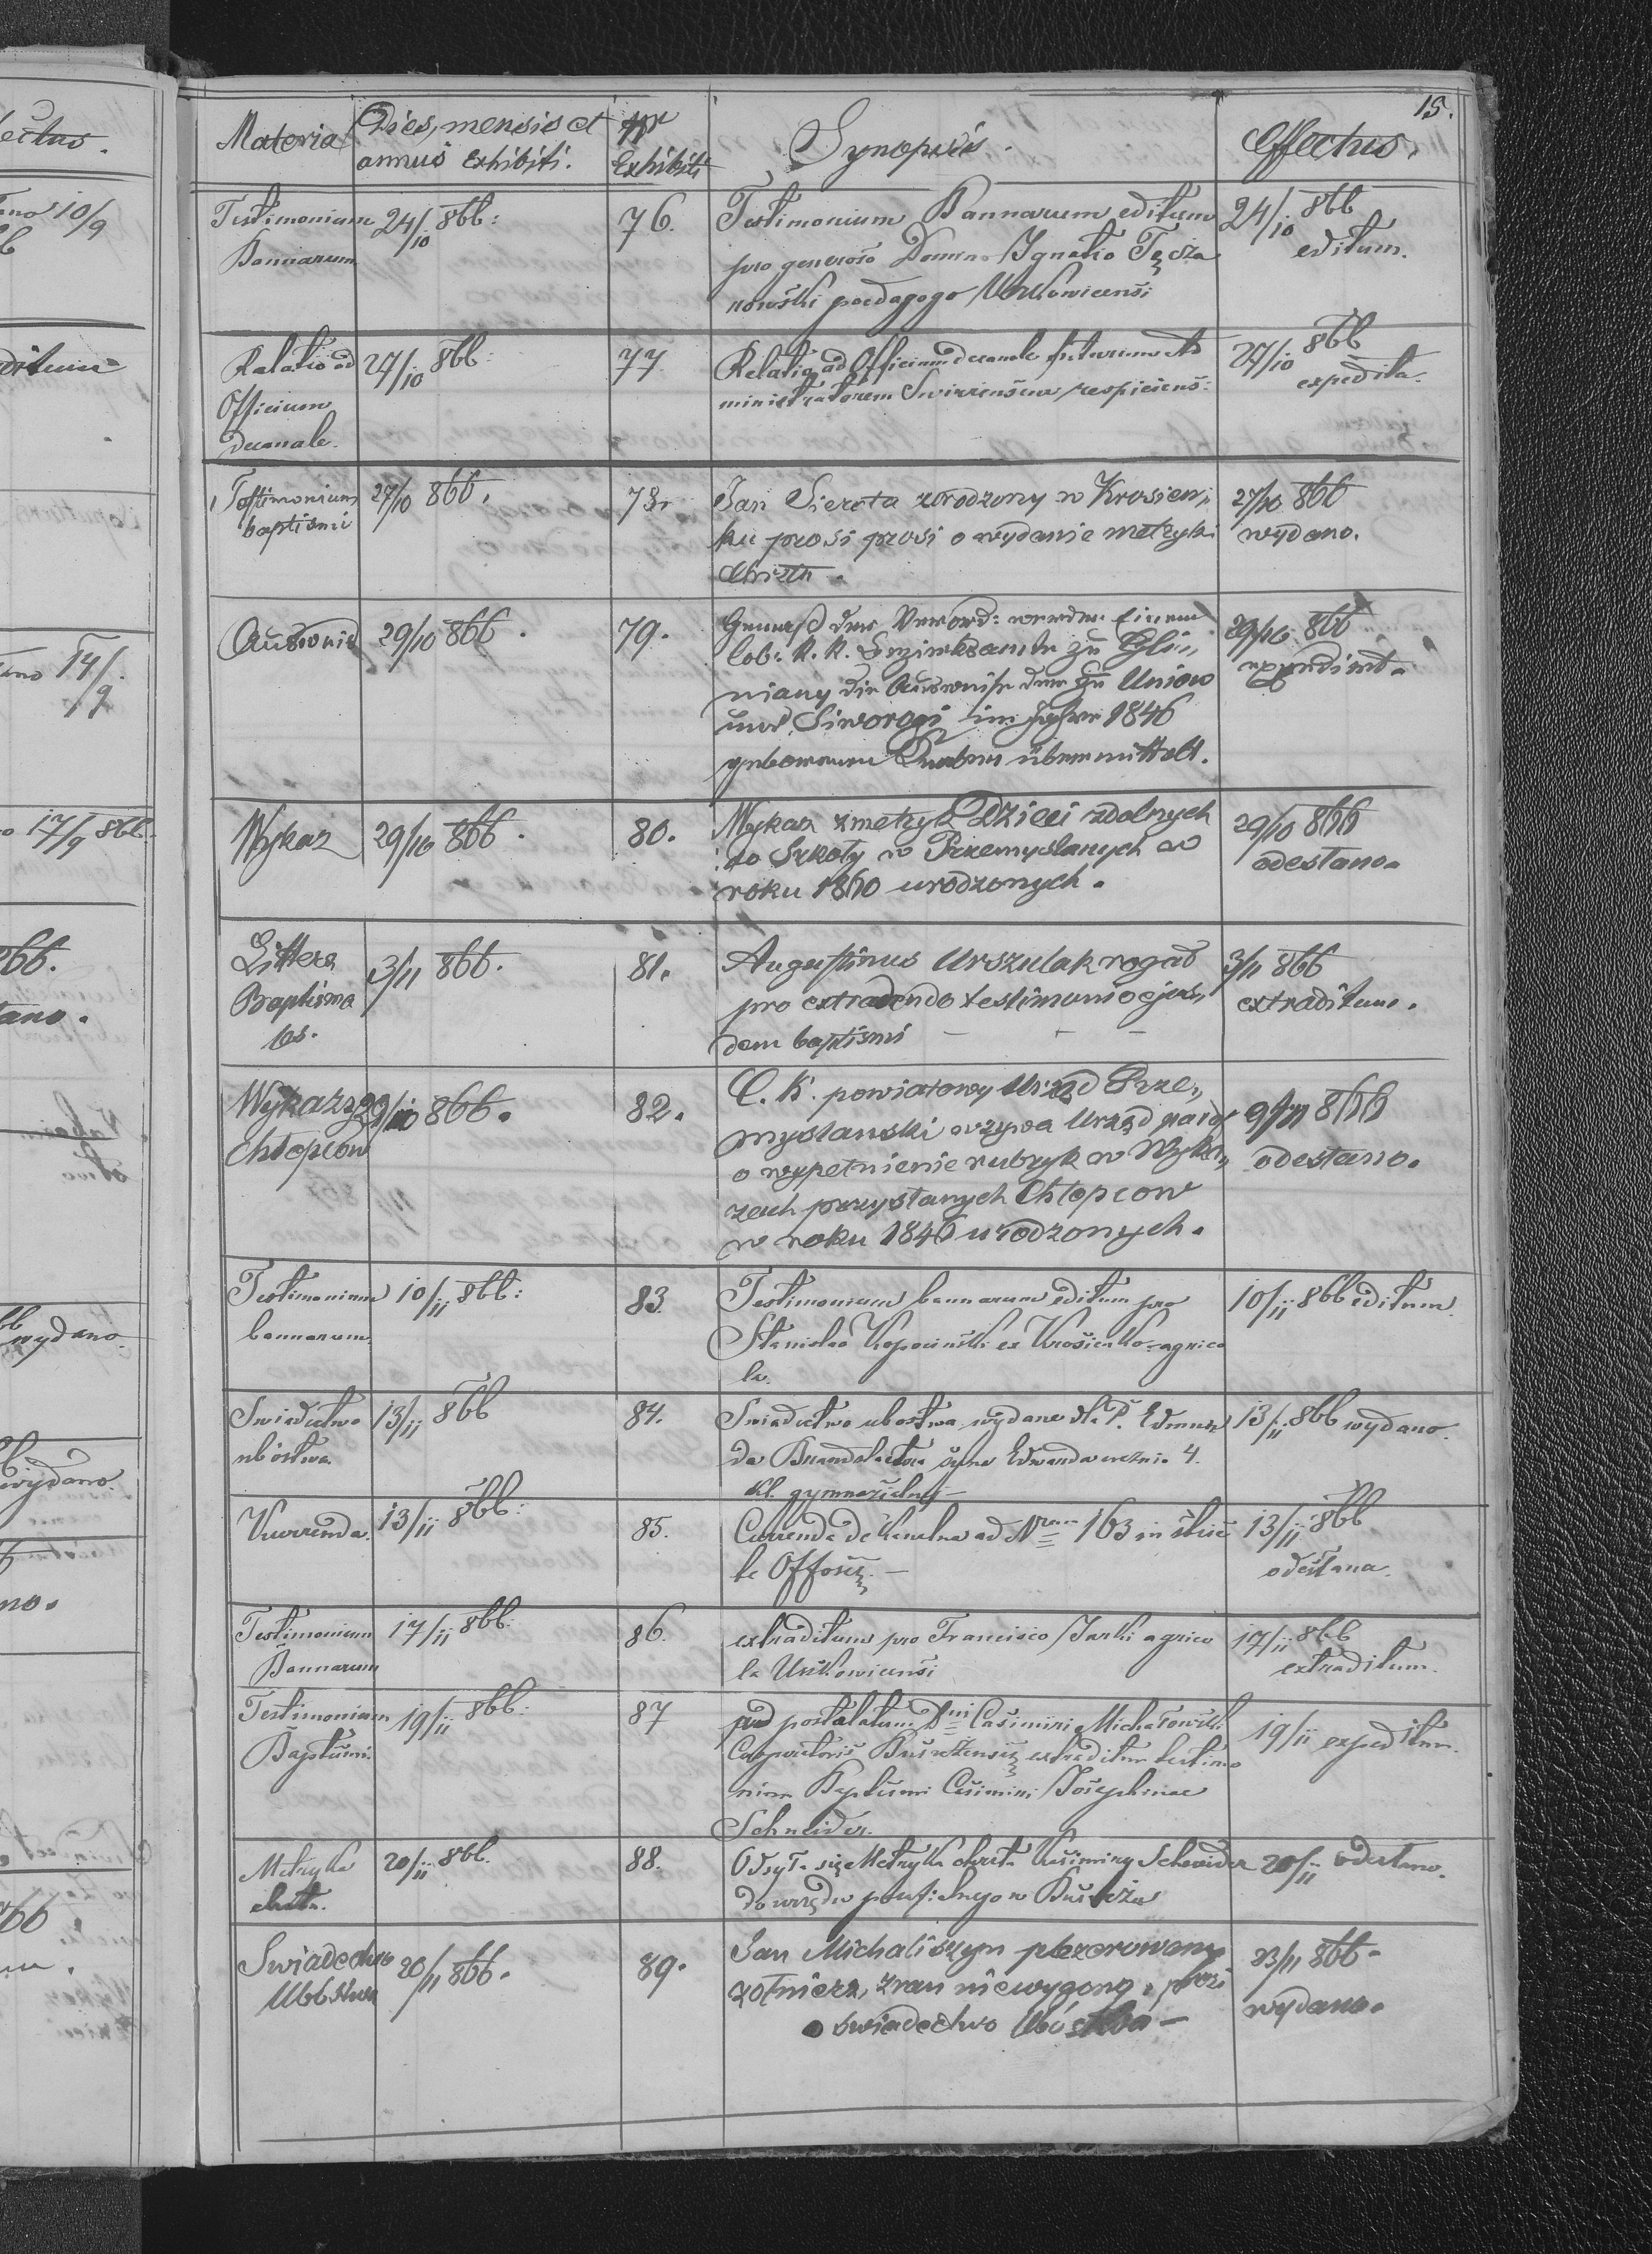 15.
Materia
Dies, mensis et
annus exhibiti.
Nr
Exhibiti
Synopsis.
Effectus.
Testimonium
Bannarum
24/10 866:
76.
Testimonium Bannarum editum
pro generoso Domino Ignatio Tęcza
nowski paedagogo
24/10 866
editum.
Relatio ad
Officium
Decanale.
27/10 866:
77.
Relatio ad Officium decanale futurum Ad
ministratorem Swirzensem respiciens:
27/10 866
expedita.
Testimonium
baptismi
27/10 866.
78.
Jan Sierota zrodzony w Krosien„
ku prosi prosi o wydanie metryki
Chrztu.
27/10 866
wydano.
Ausweis
29/10 866.
79.
Gemäß der Verord: werden einem
löb: K. K. Bezirksamte zu Gli„
niany die Ausweise der zu Uniow
und Siworogi im Jahre 1846
geborenen Knaben übermittelt.
29/10 866
expedirt.
Wykaz
29/10 866.
80.
Wykaz z metryk Dzieci zdolnych
do Szkoły w Przemyslanych w
roku 1860 urodzonych.
29/10 866
odesłano.
Littera
Baptisma
les.
3/11 866.
81.
Augustinus Urszulak rogat
pro extradendo testimonio ejus„
dem baptismi
3/11 866
extraditum.
Wykazy
Chłopcow
9/10 866.
82.
C. K. powiatowy Urząd Prze„
myslanski wzywa Urząd par:
o wypełnienie rubryk w Wyka„
zach przysłanych Chłopcow
w roku 1846 urodzonych.
9/11 866
odesłano.
Testimonium
bannarum.
10/11 866:
83.
Testimonium bannarum editum pro
Stanislao Kopocinski ex Krosienko agrico
la.
10/11 866 editum.
Swiadectwo
ubóstwa.
13/11 866
84.
Swiadectwo ubostwa wydane dla P. Edmun
da syna Edwarda ucznia 4.
kl. gymnazialnej —
13/11 866 wydano.
Kurrenda.
13/11 866:
85.
Currenda dekanalna ad Nrum 163
13/11 866
odesłana.
Testimonium
Bannarum
17/11 866.
86.
extraditum pro Francisco Jarki agrico
la
17/11 866
extraditum.
Testimonium
Baptismi.
19/11 866:
87
ad postulatum Dni Casimiri Michałowski
Cooperatoris extraditum testimo
nium Baptismi Casimiri Josephinae
Schneider.
19/11 expeditum.
Metryka
chrztu.
20/11 866.
88.
Odsyła się Metryka chrztu Kazimiry Schneider
do urzędu
20/11 odesłano.
Swiadectwo
Ubóstwa
20/11 866.
89.
Jan Michaliszyn plezerowany
żołnierz, z ran niewygony, prosi
o swiadectwo Ubóstwa —
23/11 866
wydano.